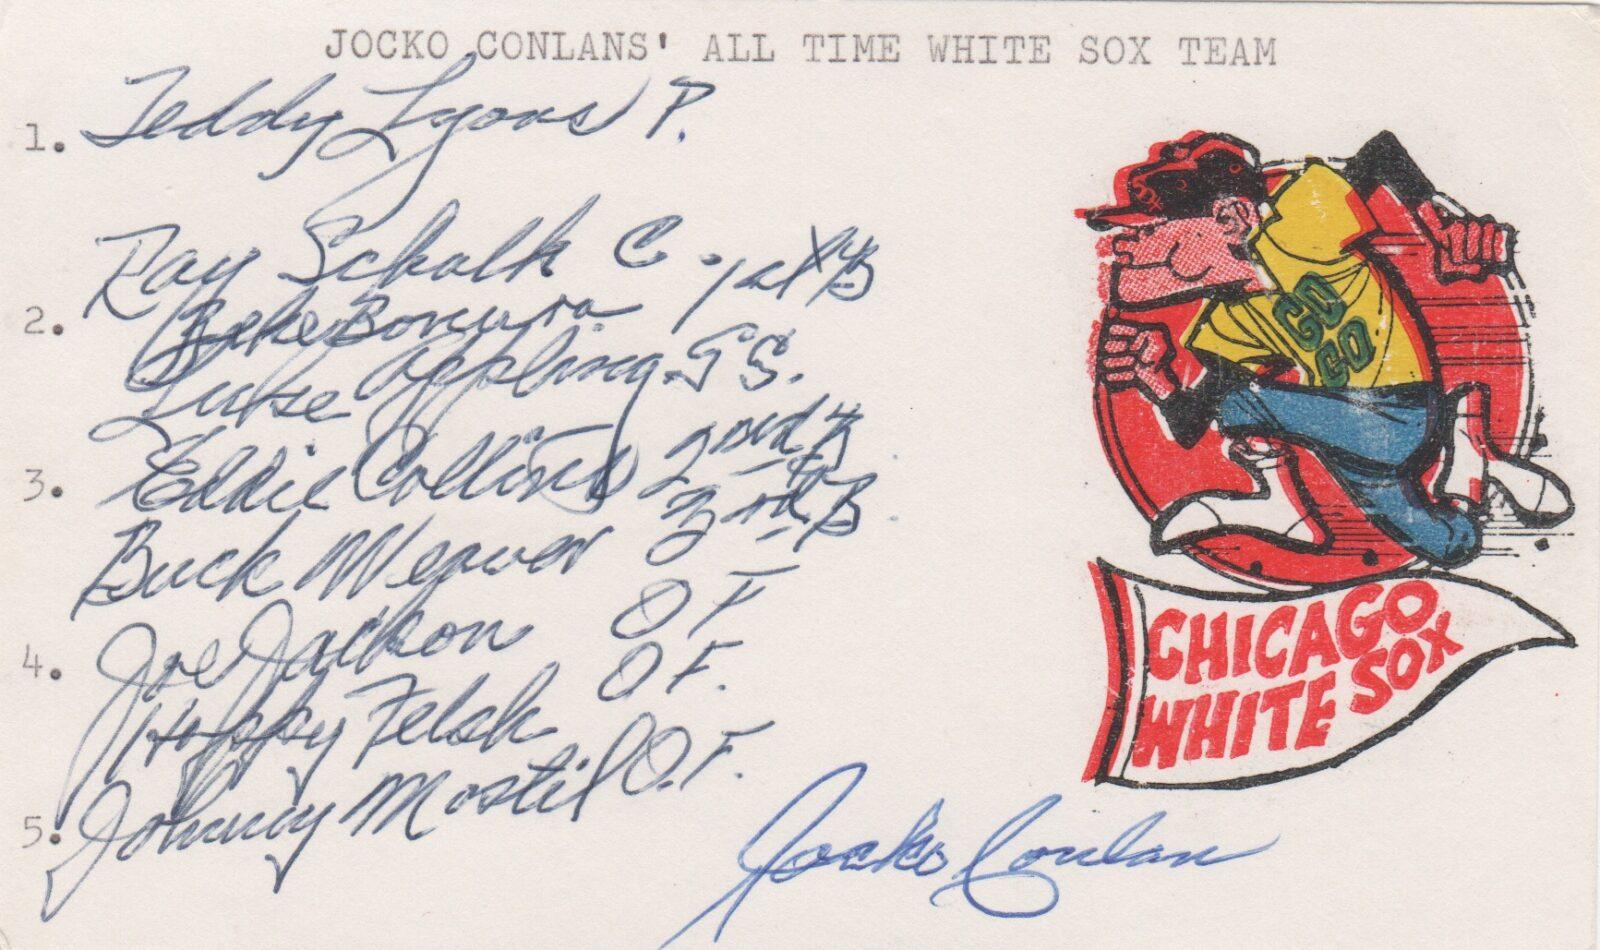 JOCKO CONLANS' ALL TIME WHITE SOX TEAM
1. Teddy Lyons P.
Ray Schalk C.
2. Zeke Bonura. 1st B
Luke Appling. SS.
3. Eddie Collins 2nd B
Buck Weaver 3rd B.
4. Joe Jackson OF
Happy Felsh OF.
5. Johnny Mostil O.F.
Jocko Conlan
SOX
GO
GO
CHICAGO
WHITE SOX